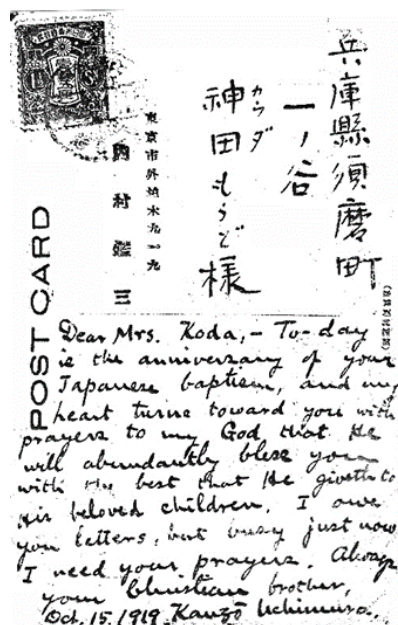 兵庫縣須磨町
一ノ谷
カウダ
神田もうど様
東京市外柏木九一九
内村鑑三
POST CARD
Dear Mrs. Koda,— To-day
is the anniversary of your
Japanese baptism, and my
heart turns toward you with
prayers to my God that He
will abundantly bless you
with the best that He giveth to
His beloved children. I owe
you letters, but busy just now.
I need your prayers. Always
your Christian brother,
Oct. 15, 1919. Kanzō Uchimura.